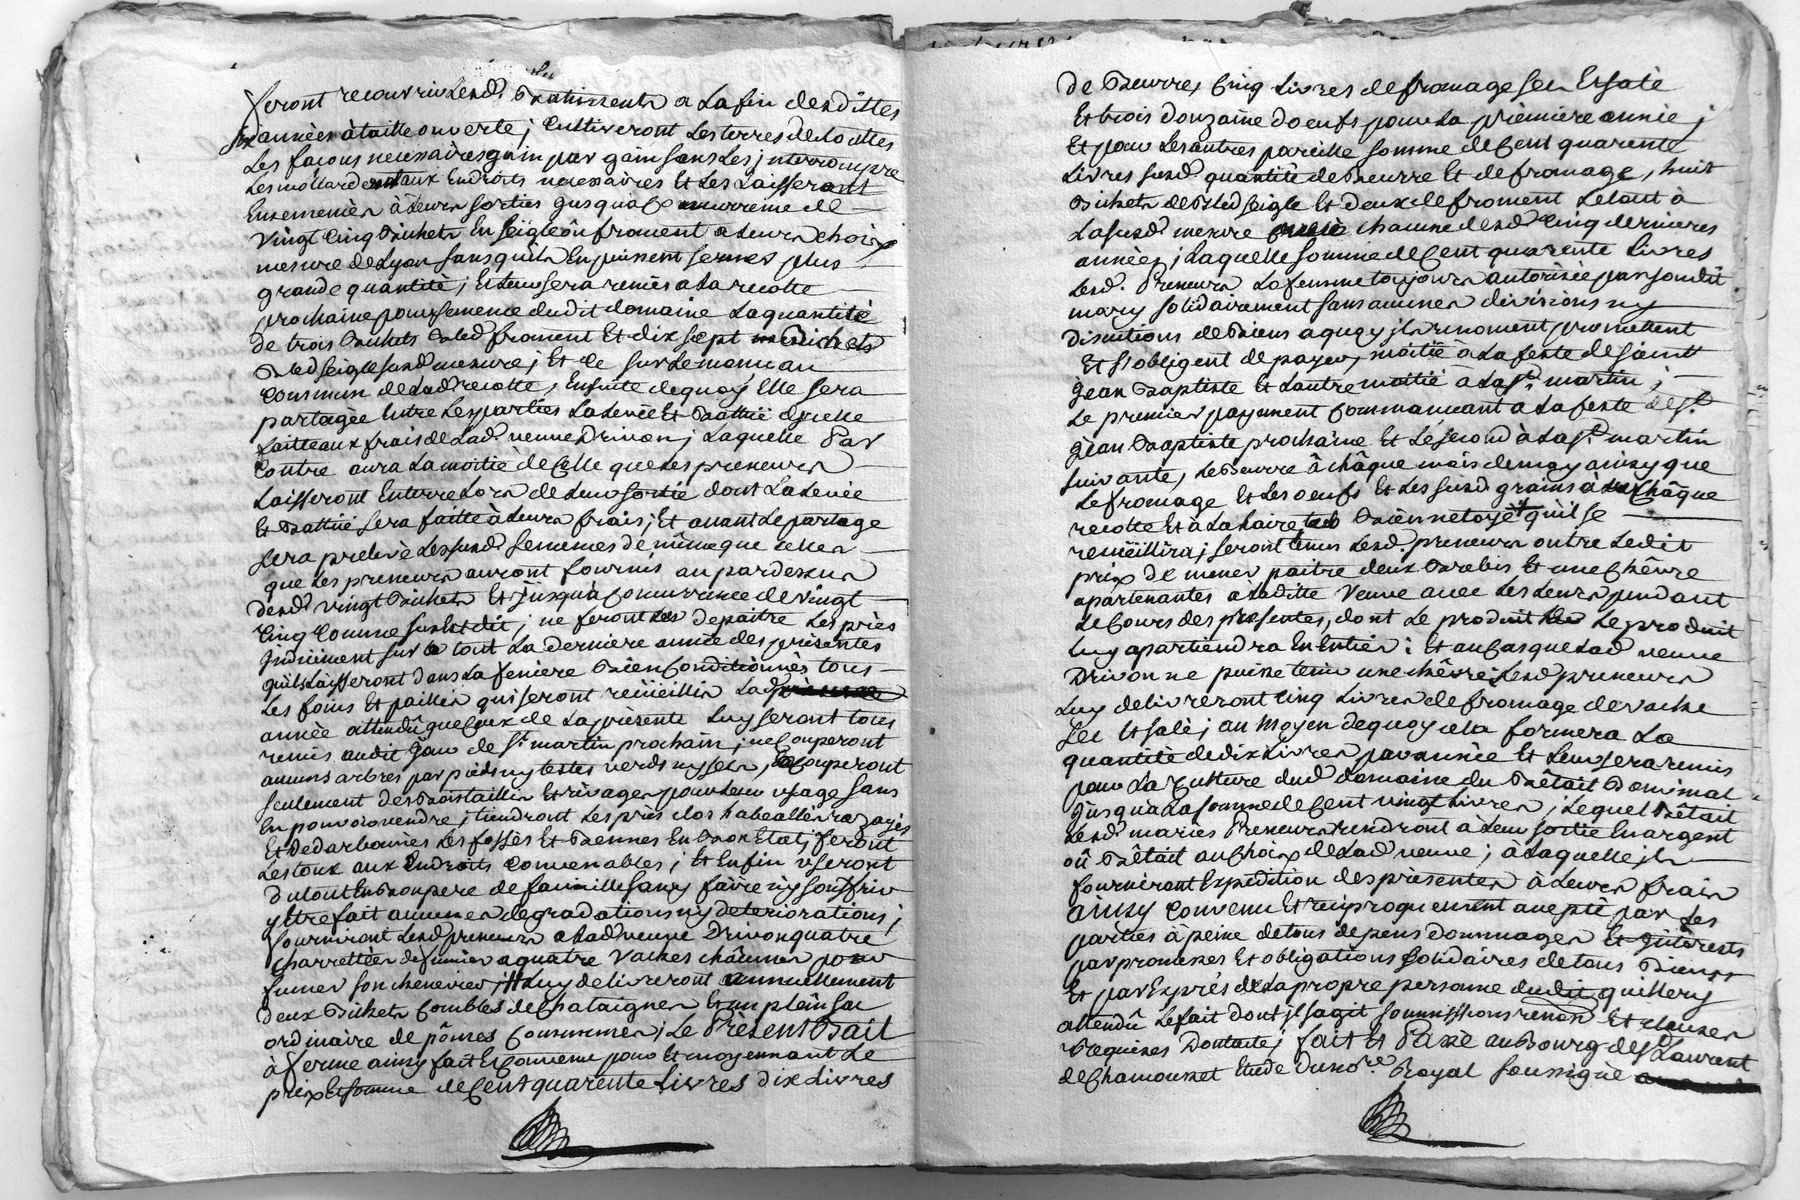 feront recouvrir lesd. Batiments a la fin desdittes
six années à taille ouverte; Cultiveront les terres de touttes
les façons necessaires gain par gain sans les interrompre
les mollarderont aux Endroits necessaires Et les Laisseront
Ensemencés à leurs sorties jusqu'a Concurrence de
vingt Cinq Bichets En seigle où froment a leurs choix
mesure de Lyon sans quils En puissent semer plus
grande quantité; Et leur sera remis a la recolte
prochaine pour semence dudit domaine La quantité
de trois Bichets Bled froment Et dix sept Bichets
Bled seigle susd. mesure; Et Ce sur le monceau
Commun de lad. recolte, Ensuite dequoy Elle sera
partagée Entre les parties La levée Et Battüe d'icelle
faitte aux frais de Lad. veuve Drivon; Laquelle Par
Contre aura La moitié de Celle que les preneurs
Laisseront Enterre Lors de leur sortie dont La levée
Et Battüe sera faitte à leurs frais; Et avant Le partage
sera prelevé les susd. semences de même que celles
que les preneurs auront fournis au pardessus
desd. vingt Bichets Et jusqu'à Concurrence de vingt
Cinq Comme susest dit; ne feront depaitre les près
judiciment sur le tout La derniere année des présentes
quils Laisseront dans La feniere Bien Conditionnés tous
les foins Et pailles qui seront reciieillis Lad.
année attendû que Ceux de La présente Luy seront tous
remis audit jour de St. martin prochain; ne Couperont
aucuns arbres par pieds ny testes verds ny secs, Couperont
seulement des Bois taillis Et rivages pour leur usage sans
En pouvoir vendre; tiendront Les près clos habeallés razayés
Et dedarbounés Les fossés Et Bennes En Bon Etat, feront
Lestoux aux Endroits Convenables; Et Enfin useront
du tout En Bon pere de famille sans y faire ny souffrir
y Etre fait aucunes degradations ny deteriorations;
fourniront Lesd. preneurs a Lad. veuve Drivon quatre
charrettées de fumier a quatre vaches châcunes pour
fumer son chenevier, Luy delivreront annuellement
deux Bichets Combles de Chataignes Et un plein sac
ordinaire de pômes Communes; Le Présent Bail
à ferme ainsy fait Et Convenu pour Et moyennant Le
prix Et somme de Cent quarente Livres dix Livres
de Beurre, Cinq Livres de fromage sec Et salé
Et trois douzaine d'oeufs pour La première année;
Et pour Les autres pareille somme de Cent quarente
Livres susd. quantité de Beurre Et de fromage, huit
Bichets de Bled seigle Et deux de froment Le tout à
La susd. mesure chacune desd. Cinq dernieres
années; Laquelle somme de Cent quarente Livres
Lesd. Preneurs La femme toujours autorisée par son dit
mary solidairement sans aucunes divisions ny
discutions de Biens a quoy ils renoncent promettent
Et s'obligent de payer, moitié à La feste de saint
Jean Baptiste Et L'autre moitié à La St. martin;
Le premier payement Commancant a La feste de St.
Jean Baptiste prochaine Et Le second à La St. martin
suivante, Le Beurre à châque mois de may ainsy que
Le fromage Et Les oeufs Et Les susd. grains à Châque
recolte Et à La haire Bien netoyé qu'il se
reciieillira; seront tenus Lesd. preneurs outre Ledit
prix de mener paitre deux Brebis Et une Chévre
apartenantes a Laditte veuve avec Les Leurs pendant
Le Cours des presentes, dont Le produit Le produit
Luy apartiendra En Entier: Et au Cas que Lad. veuve
Drivon ne puisse tenir une chêvre Lesd. preneurs
Luy delivreront Cinq Livres de fromage de vache
sec Et salé; au moyen dequoy cela formera La
quantité de dix Livres par année Et Leur sera remis
pour La Culture dud. domaine du Bêtail Bominal
jusqu'a La somme de Cent vingt Livres, Lequel Bêtail
Lesd. mariés Preneurs rendront à Leur sortie En argent
où Bêtail au Choix de Lad. veuve; à Laquelle ils
fourniront Expedition des presentes à Leurs frais
ainsy Convenu Et reciproquement accepté par Les
parties à peine de tous depens dommages Et intérests
par promesses Et obligations solidaires de tous Biens
Et par Exprés de La propre personne dudit quillery
attendû Le fait dont il sagit soumissions renon. Et clauses
Requises Dont acte; fait Et Passé au Bourg de St. Laurent
de Chamousset Etude du nore. Royal soussigné